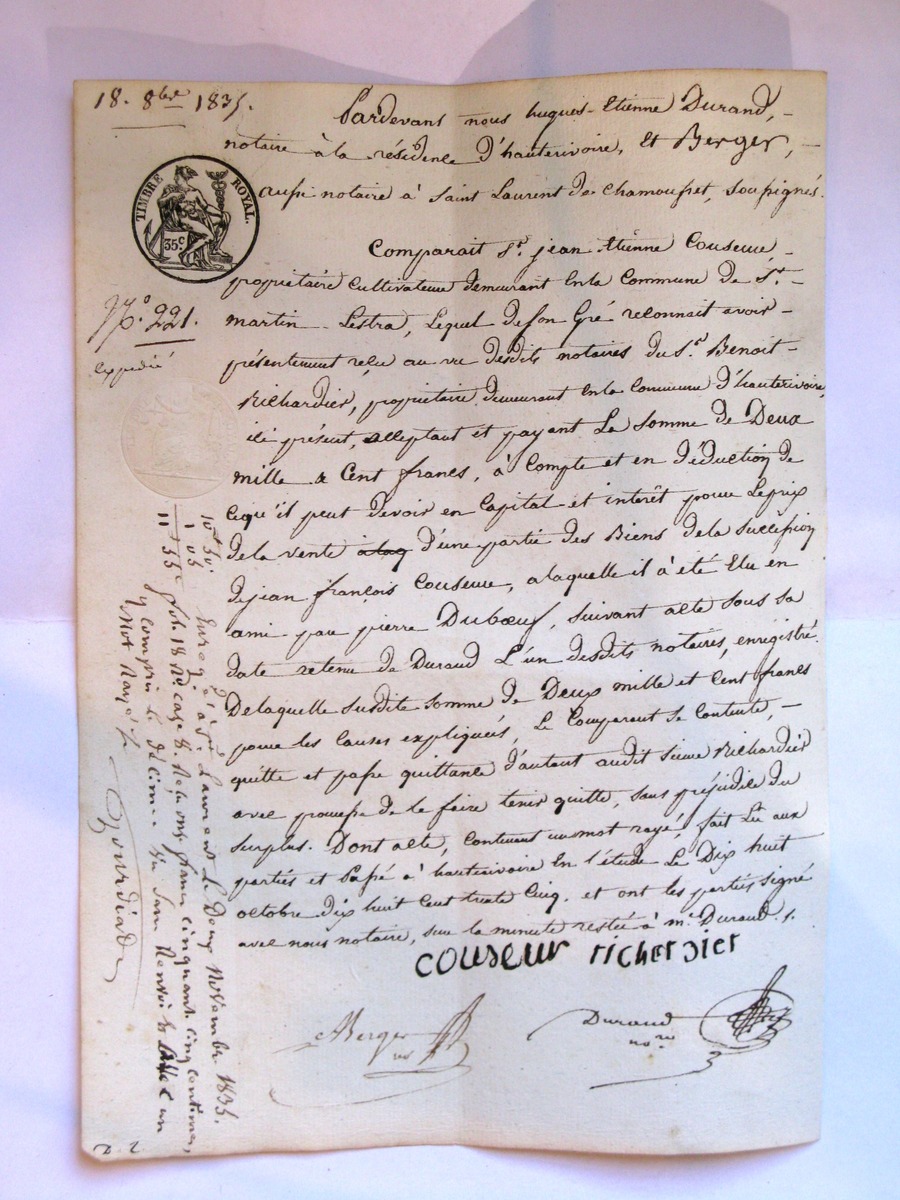 18. 8bre 1835.
Pardevant nous hugues-Etienne Durand,
notaire à la résidence d'hauterivoire, Et Berger,
aussi notaire à Saint Laurent de chamousset, soussignés.
TIMBRE ROYAL.
35c
Comparait Sr. jean Etienne Couseur,
propriétaire Cultivateur demeurant En la Commune de St.
No. 221.
martin-Lestra, Lequel de son Gré reconnait avoir
expédié
présentement reçu au vu desdits notaires du Sr. Benoit
Richardier, propriétaire demeurant En la Commune d'hauterivoire,
ici présent, acceptant et payant La somme de Deux
mille & Cent francs, à Compte et en déduction de
ce qu'il peut devoir en Capital et intérêt pour Le prix
de la vente d'une partie des Biens de la succession
de jean françois Couseur, a laquelle il à été Elu en
ami par pierre Dubœuf, suivant acte sous sa
date retenu de Durand L'un desdits notaires, enregistré.
De laquelle susdite somme de Deux mille et Cent francs
pour les Causes expliquées, Le Comparant se Contente,
quitte et passe quittance d'autant audit sieur Richardier
avec promesse de le faire tenir quitte, sans préjudice du
surplus. Dont acte, Contenant un mot rayé, fait Lu aux
parties et Passé à hauterivoire En l'étude Le Dix huit
octobre Dix huit Cent trente Cinq. et ont les parties signé
avec nous notaire, sur la minute restée à me. Durand.
couseur richerdier
Berger
nre
Durand
nore
Enregé. à St. Laurent Le Deux Novembre 1835.
fol. 18 Ro case 8. Reçu onze francs cinquante cinq centimes,
y compris le décime
mot Rayé
10f 50c
1 05
11 55